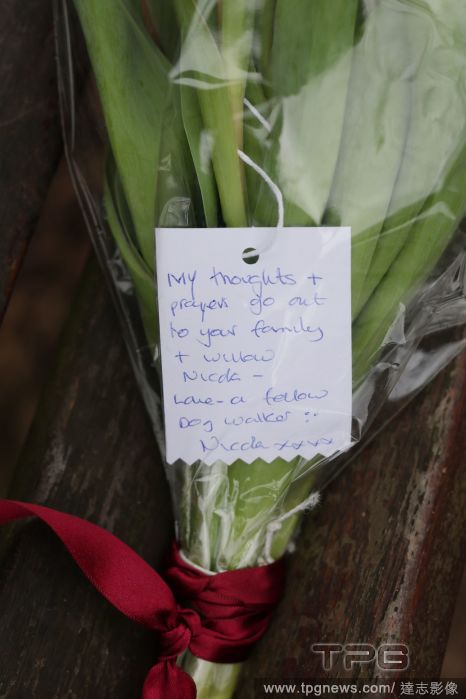 My thoughts +
prayers go out
to your family
+ willow
Nicola -
Love - a fellow
Dog walker :
Nicola xxxx
TPG
www.tpgnews.com/ 達志影像